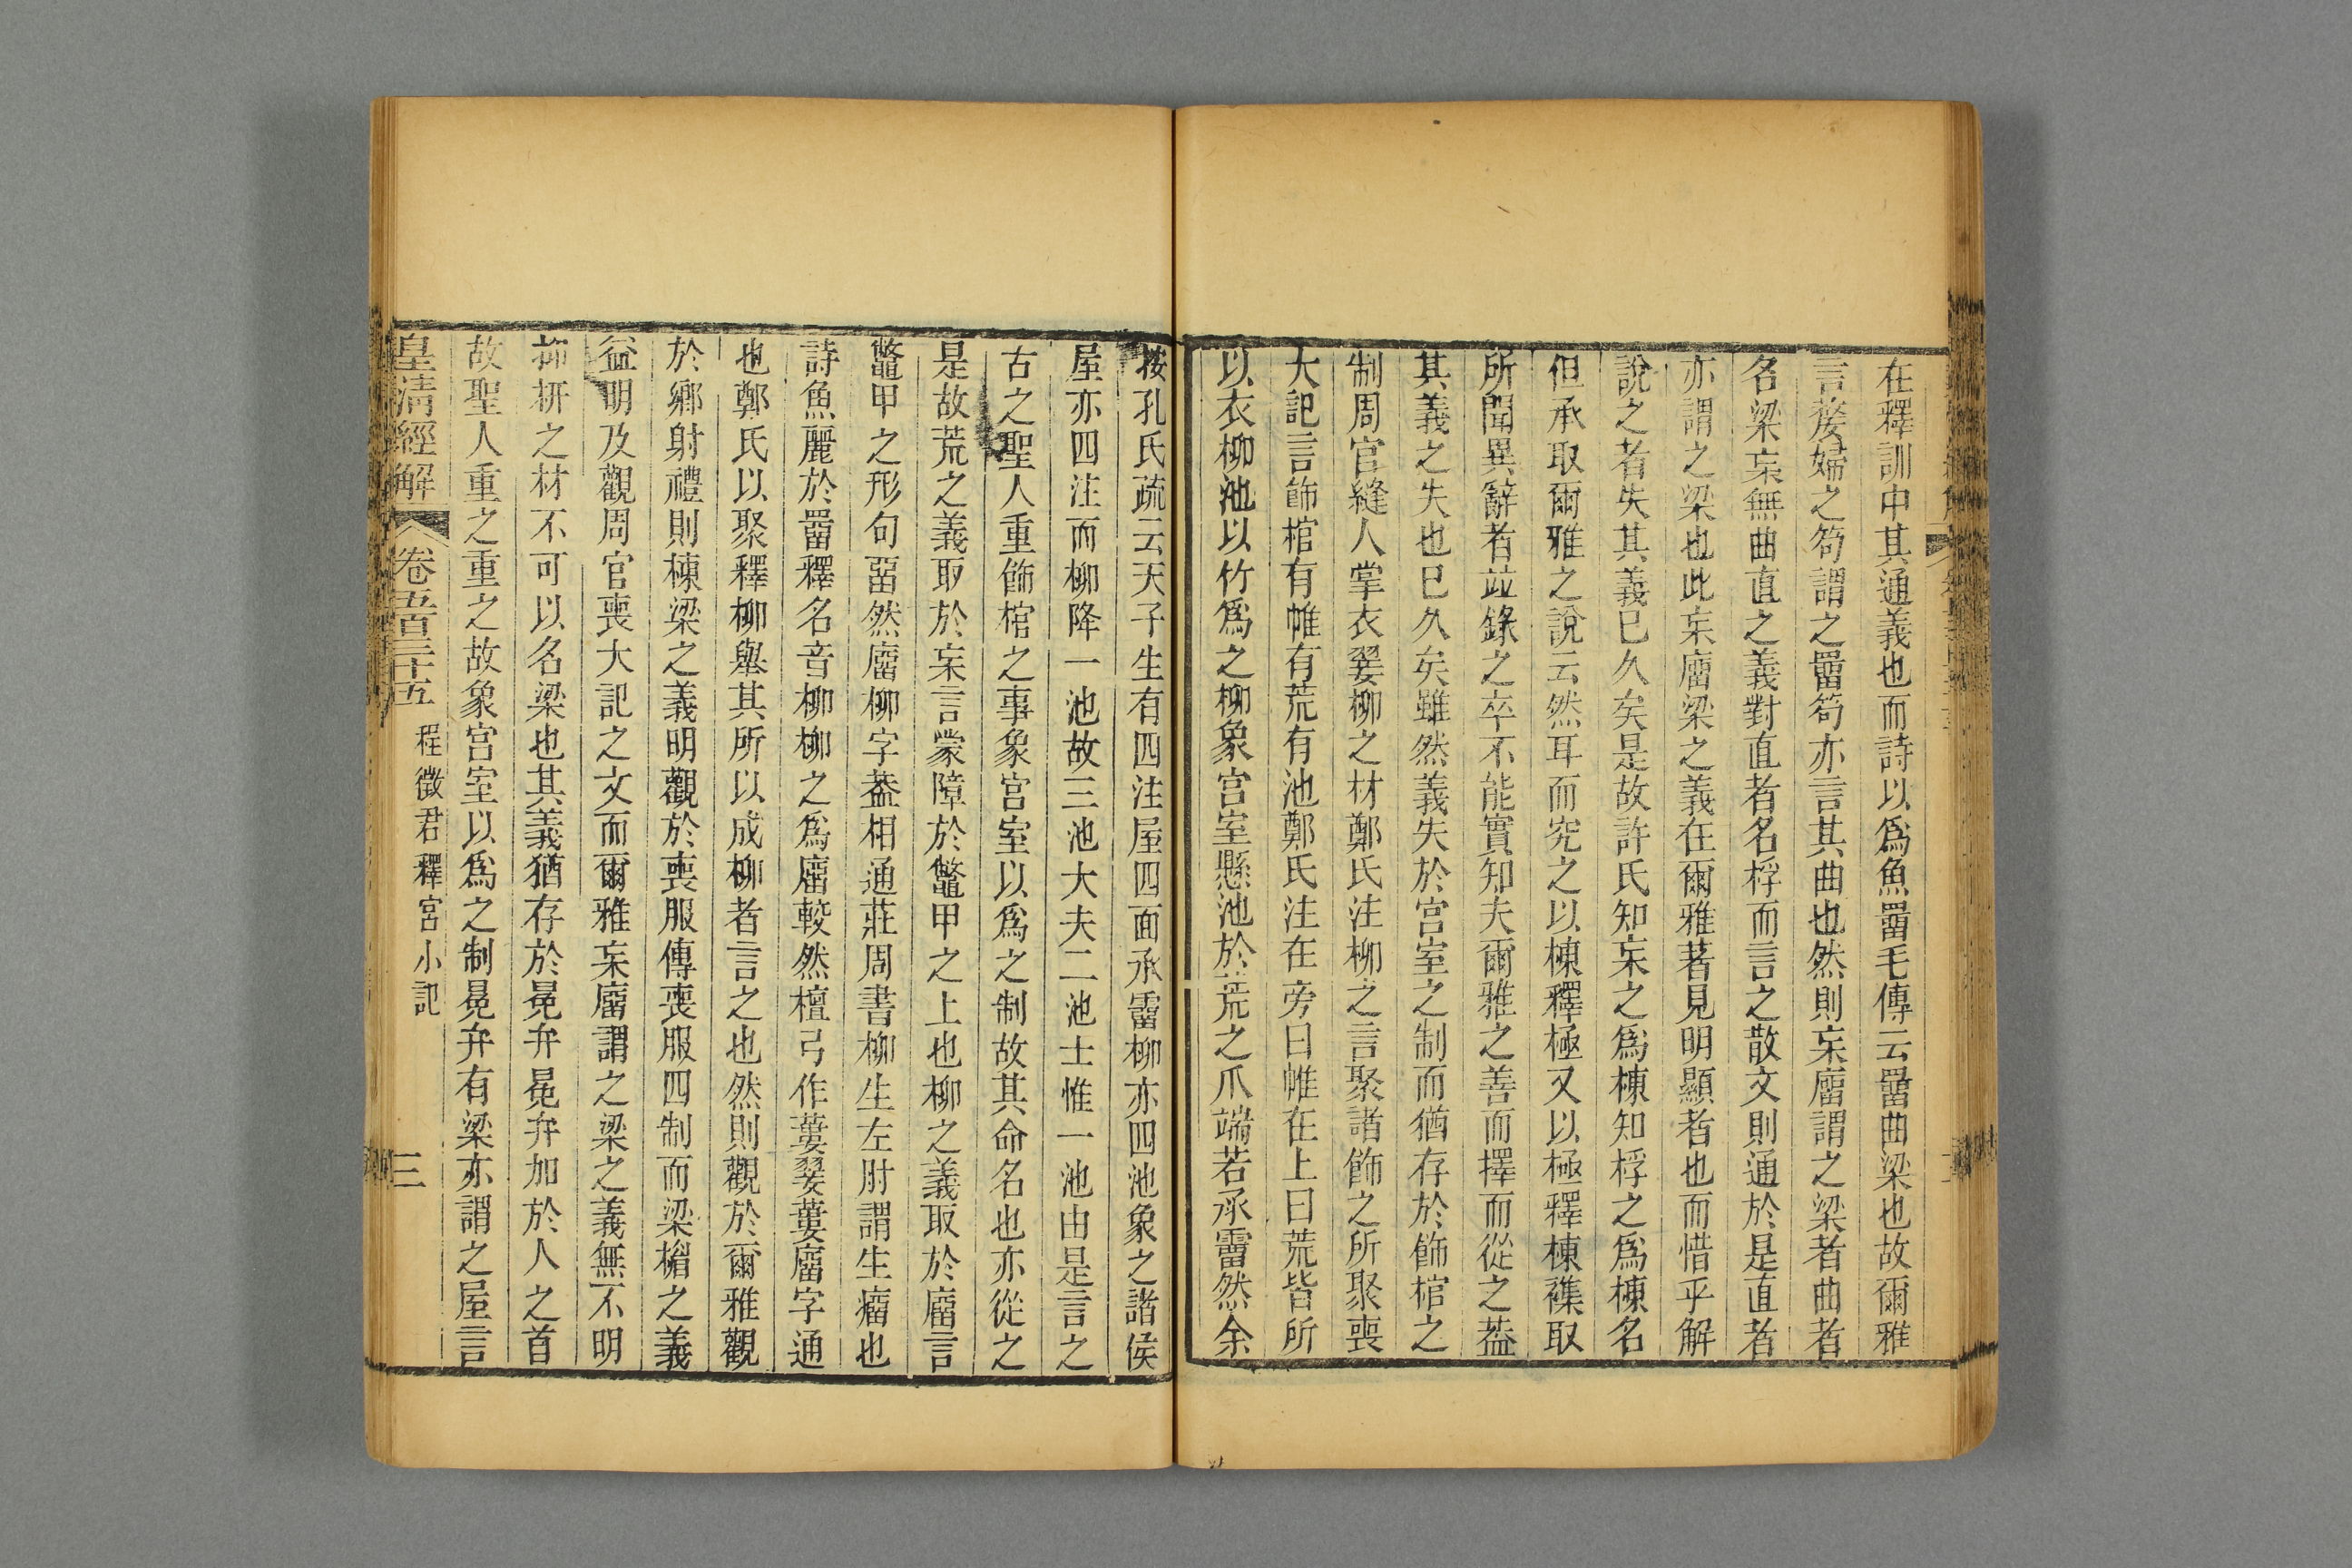 在釋訓中其通義也而詩以爲魚罶毛傳云罶曲梁也故爾雅
言嫠婦之笱謂之罶笱亦言其曲也然則杗廇謂之梁者曲者
名梁杗無曲直之義對直者名桴而言之散文則通於是直者
亦謂之梁也此杗廇梁之義在爾雅著見明顯者也而惜乎解
說之者失其義已久矣是故許氏知杗之爲棟知桴之爲棟名
但承取爾雅之說云然耳而究之以棟釋極又以極釋棟襍取
所聞異辭者竝錄之卒不能實知夫爾雅之善而擇而從之葢
其義之失也已久矣雖然義失於宮室之制而猶存於飾棺之
制周官縫人掌衣翣柳之材鄭氏注柳之言聚諸飾之所聚喪
大記言飾棺有帷有荒有池鄭氏注在旁曰帷在上曰荒皆所
以衣柳池以竹爲之柳象宮室懸池於荒之爪端若承霤然余
按孔氏疏云天子生有四注屋四面承霤柳亦四池象之諸侯
屋亦四注而柳降一池故三池大夫二池士惟一池由是言之
古之聖人重飾棺之事象宮室以爲之制故其命名也亦從之
是故荒之義取於杗言蒙障於鼈甲之上也柳之義取於廇言
鼈甲之形句罶然廇柳字葢相通莊周書柳生左肘謂生瘤也
詩魚麗於罶釋名音柳柳之爲廇較然檀弓作蔞翣蔞廇字通
也鄭氏以聚釋柳舉其所以成柳者言之也然則觀於爾雅觀
於鄉射禮則棟梁之義明觀於喪服傳喪服四制而梁楣之義
益明及觀周官喪大記之文而爾雅杗廇謂之梁之義無不明
抑栟之材不可以名梁也其義猶存於冕弁冕弁加於人之首
故聖人重之重之故象宮室以爲之制冕弁有梁亦謂之屋言
皇清經解 卷五百三十五 程徵君釋宮小記 三